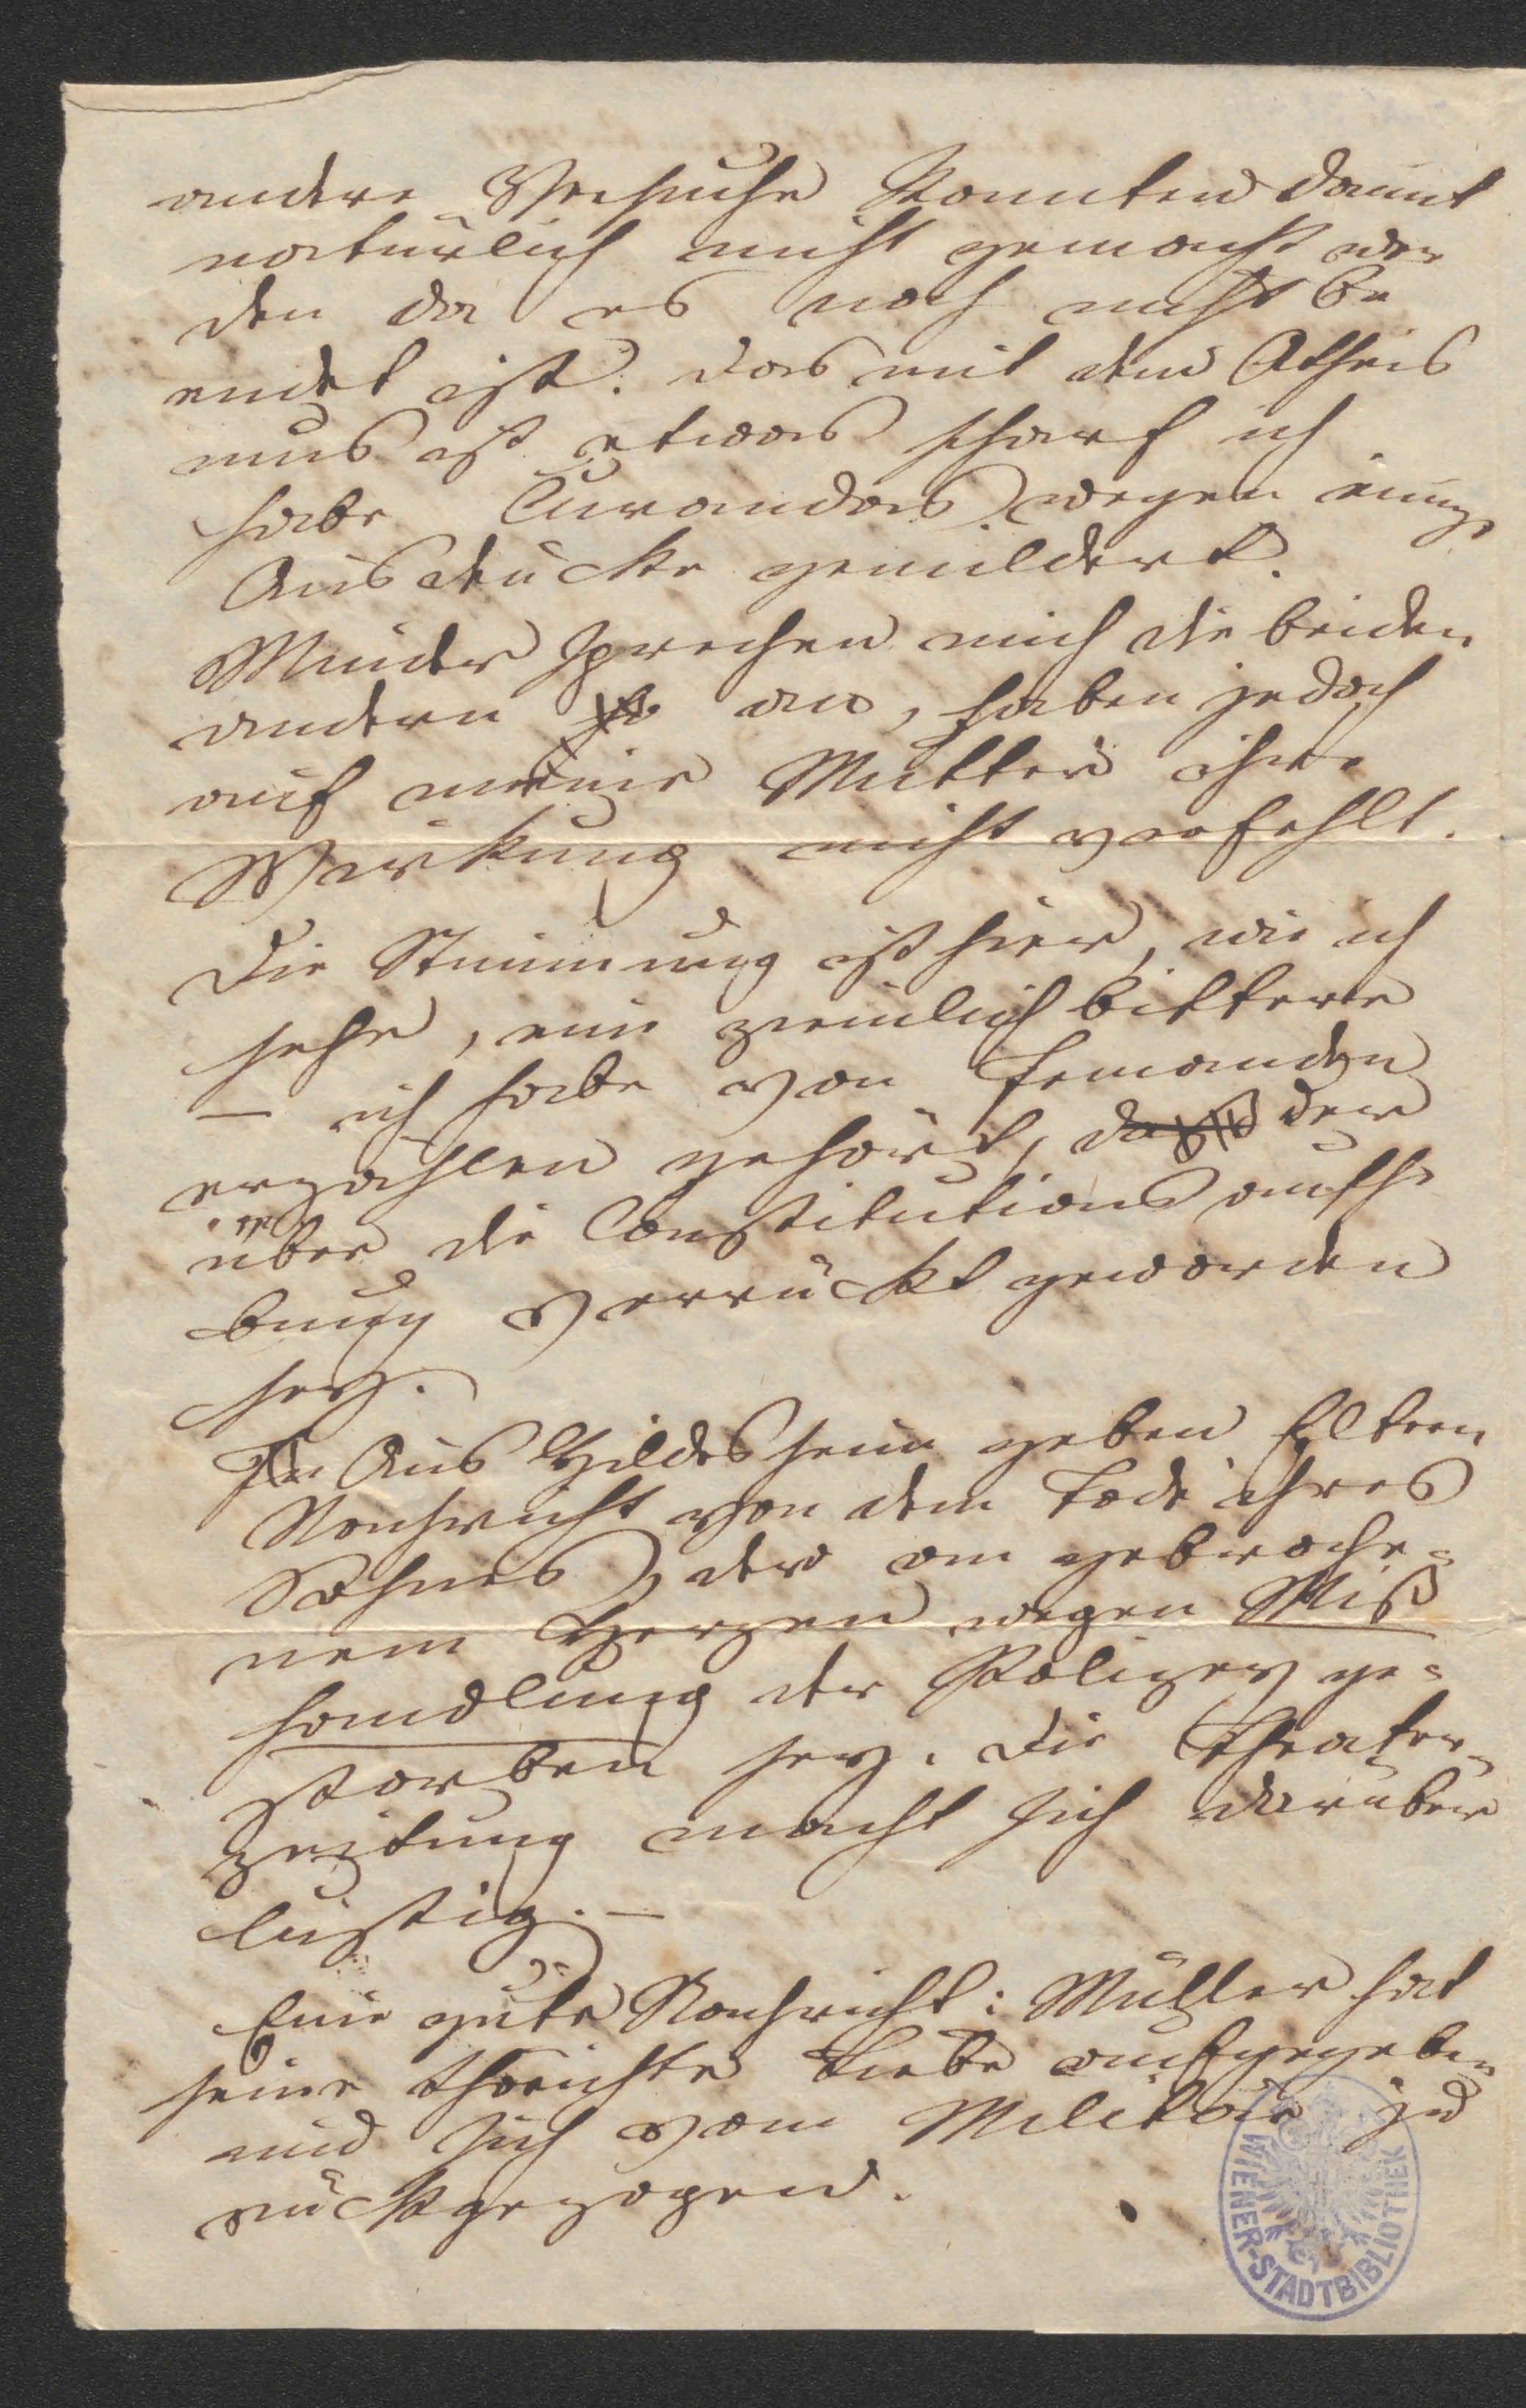 andere Versuche konnten damit
natürlich nicht gemacht wer
den da es noch nicht be
endet ist. Das mit dem Atheis
mus ist etwas scharf ich
habe Curandas wegen einige
Ausdrücke gemildert.
Minder sprechen mich die beiden
andern so an, haben jedoch
auf meine Mutter ihre
Wirkung nicht verfehlt.
Die Stimmung ist hier, wie ich
sehe, eine ziemlich bittere
– ich habe von Jemanden
erzählen gehört, daß der
über die Constitutions aufhe
bung verrückt geworden
sey.
Aus Hildesheim geben Eltern
Nachricht von dem Tode ihres
Sohnes, der am gebroche=
nem Herzen wegen Miß
handlung der Polizey ge=
storben sey. Die Theater-
zeitung macht sich darüber
lustig. –
Eine gute Nachricht: Müller hat
seine thörichte Liebe aufgegeben
und sich vom Militär zu
rückgezogen.
WIENER-STADTBIBLIOTHEK